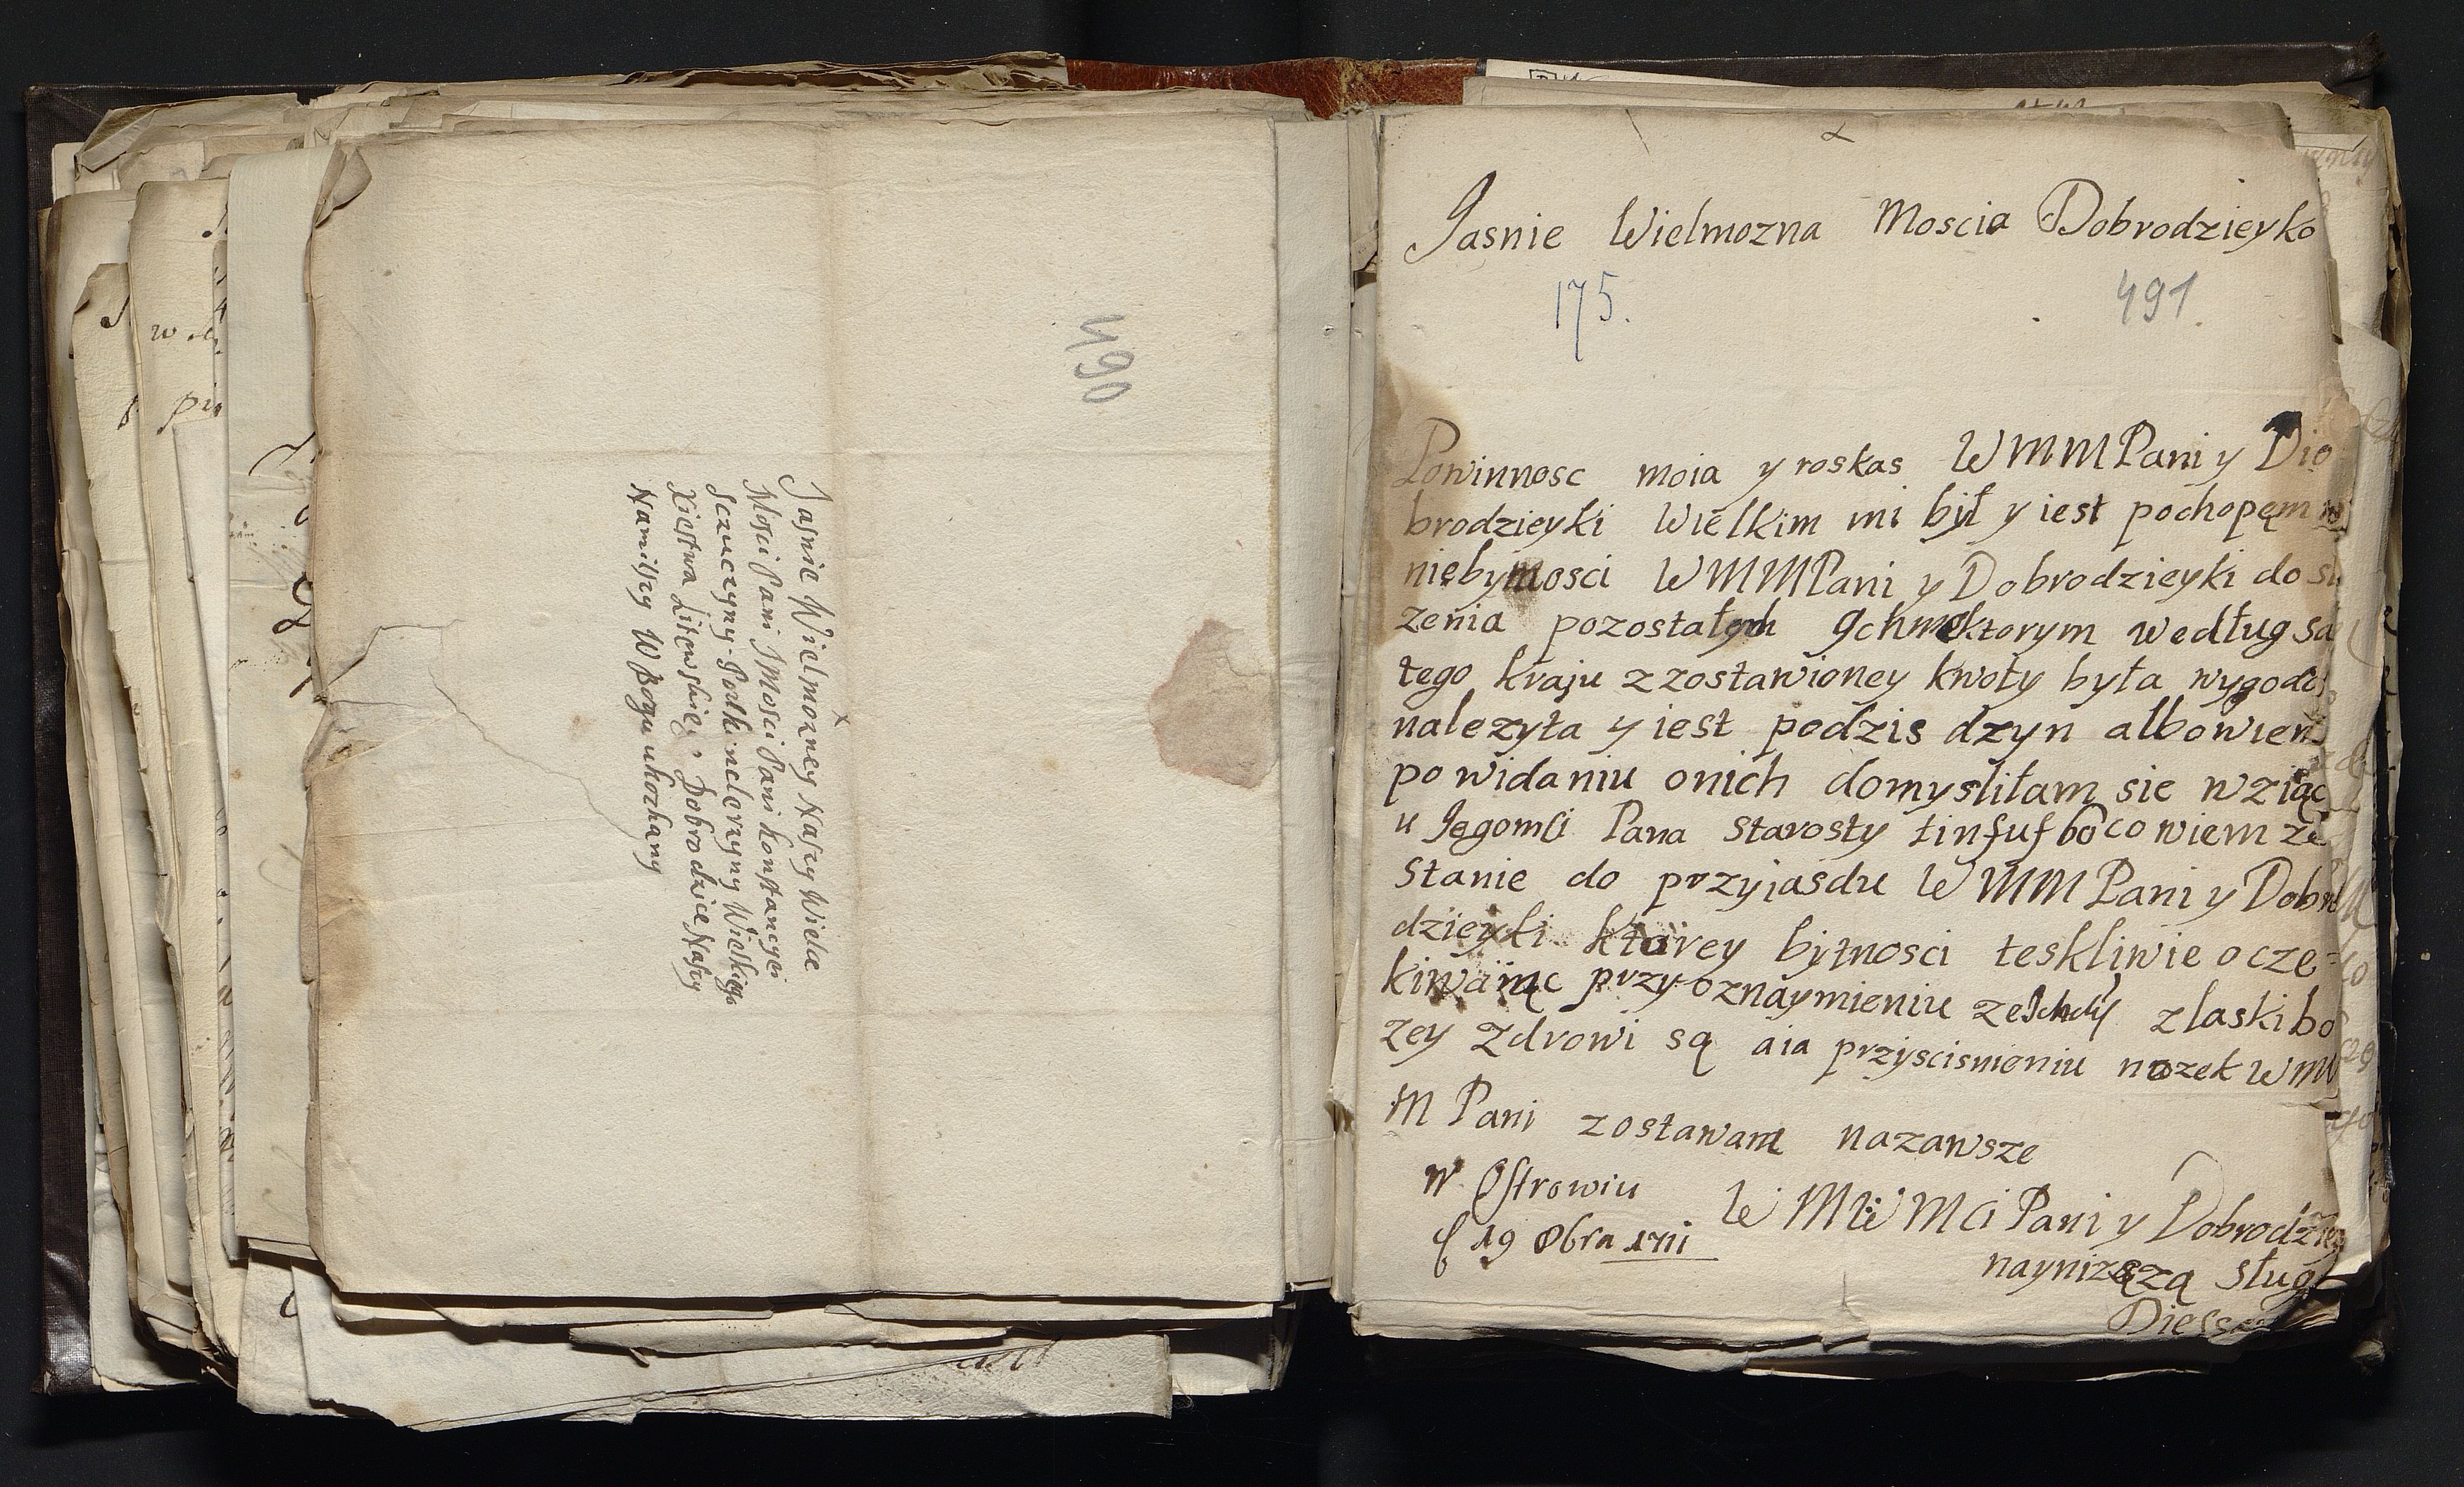 490
Jasnie Wielmozney Naszy Wielce
Mosci Pani JMosci Pani Konstancyei
Sczuczyny Podkanclerzyny Wielkiego
Xiestwa Litewskieg° Dobrodzice Naszy
Namilszy W Bogu ukochany
Jasnie Wielmozna Moscia Dobrodzieyko
175.
491.
Powinnosc moia y roskas WMMPani y Do
brodzieyki Wielkim mi był y iest pochopęm w
niebytnosci WMMPani y Dobrodzieyki do slu
zenia pozostałych Ichmci ktorym według
tego kraju z zostawioney kwoty była wygoda
nalezyta y iest podzis dzyn albowiem
powidaniu onich domysliłam sie wziąc
u Jegomści Pana Starosty tinfuf bo co wiem ze
Stanie do przyjasdu WMM Pani y Dobro
dzieyki ktorey bytnosci teskliwie ocze=
kiwaiąc przy oznaymieniu ze z laski bo
zey zdrowi są aia przyscisnieniu nozek WM
M Pani zostawam nazawsze
w Ostrowiu
19 8bra 1711
WMWMCi Pani y Dobrodziey
nayniższą sługą